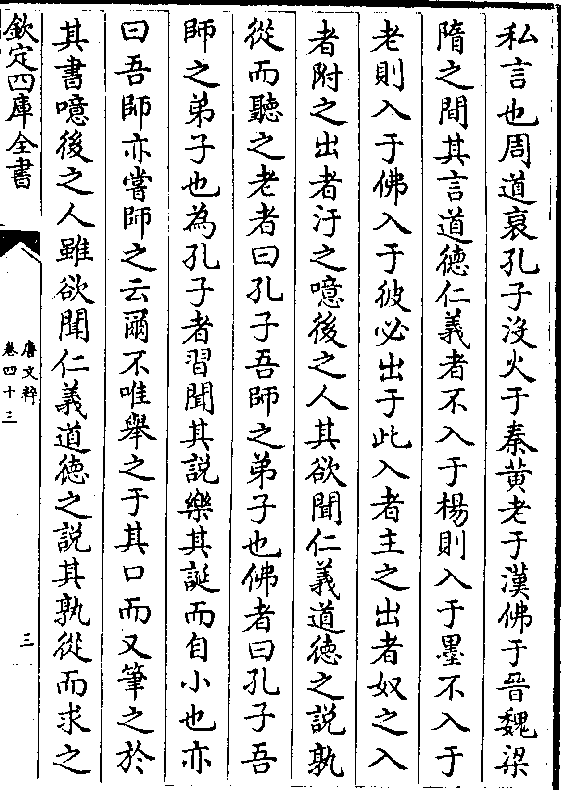 私言也周道衰孔子沒火于秦黄老于漢佛于晉魏梁
隋之間其言道德仁義者不入于楊則入于墨不入于
老則入于佛入于彼必出于此入者主之出者奴之入
者附之出者汙之噫後之人其欲聞仁義道德之說孰
從而聽之老者曰孔子吾師之弟子也佛者曰孔子吾
師之弟子也為孔子者習聞其說樂其誕而自小也亦
曰吾師亦嘗師之云爾不唯舉之于其口而又筆之於
其書噫後之人雖欲聞仁義道德之說其孰從而求之
欽定四庫全書
唐文粹
卷四十三
三